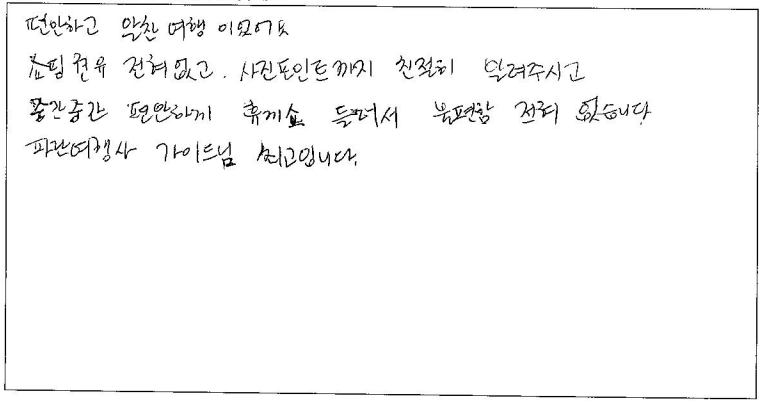 편안하고 알찬 여행 이였어요
쇼핑 권유 전혀없고. 사진포인트까지 친절히 알려주시고
중간중간 편안하게 휴게소 들려서 불편함 전혀 없습니다
파란여행사 가이드님 최고입니다.